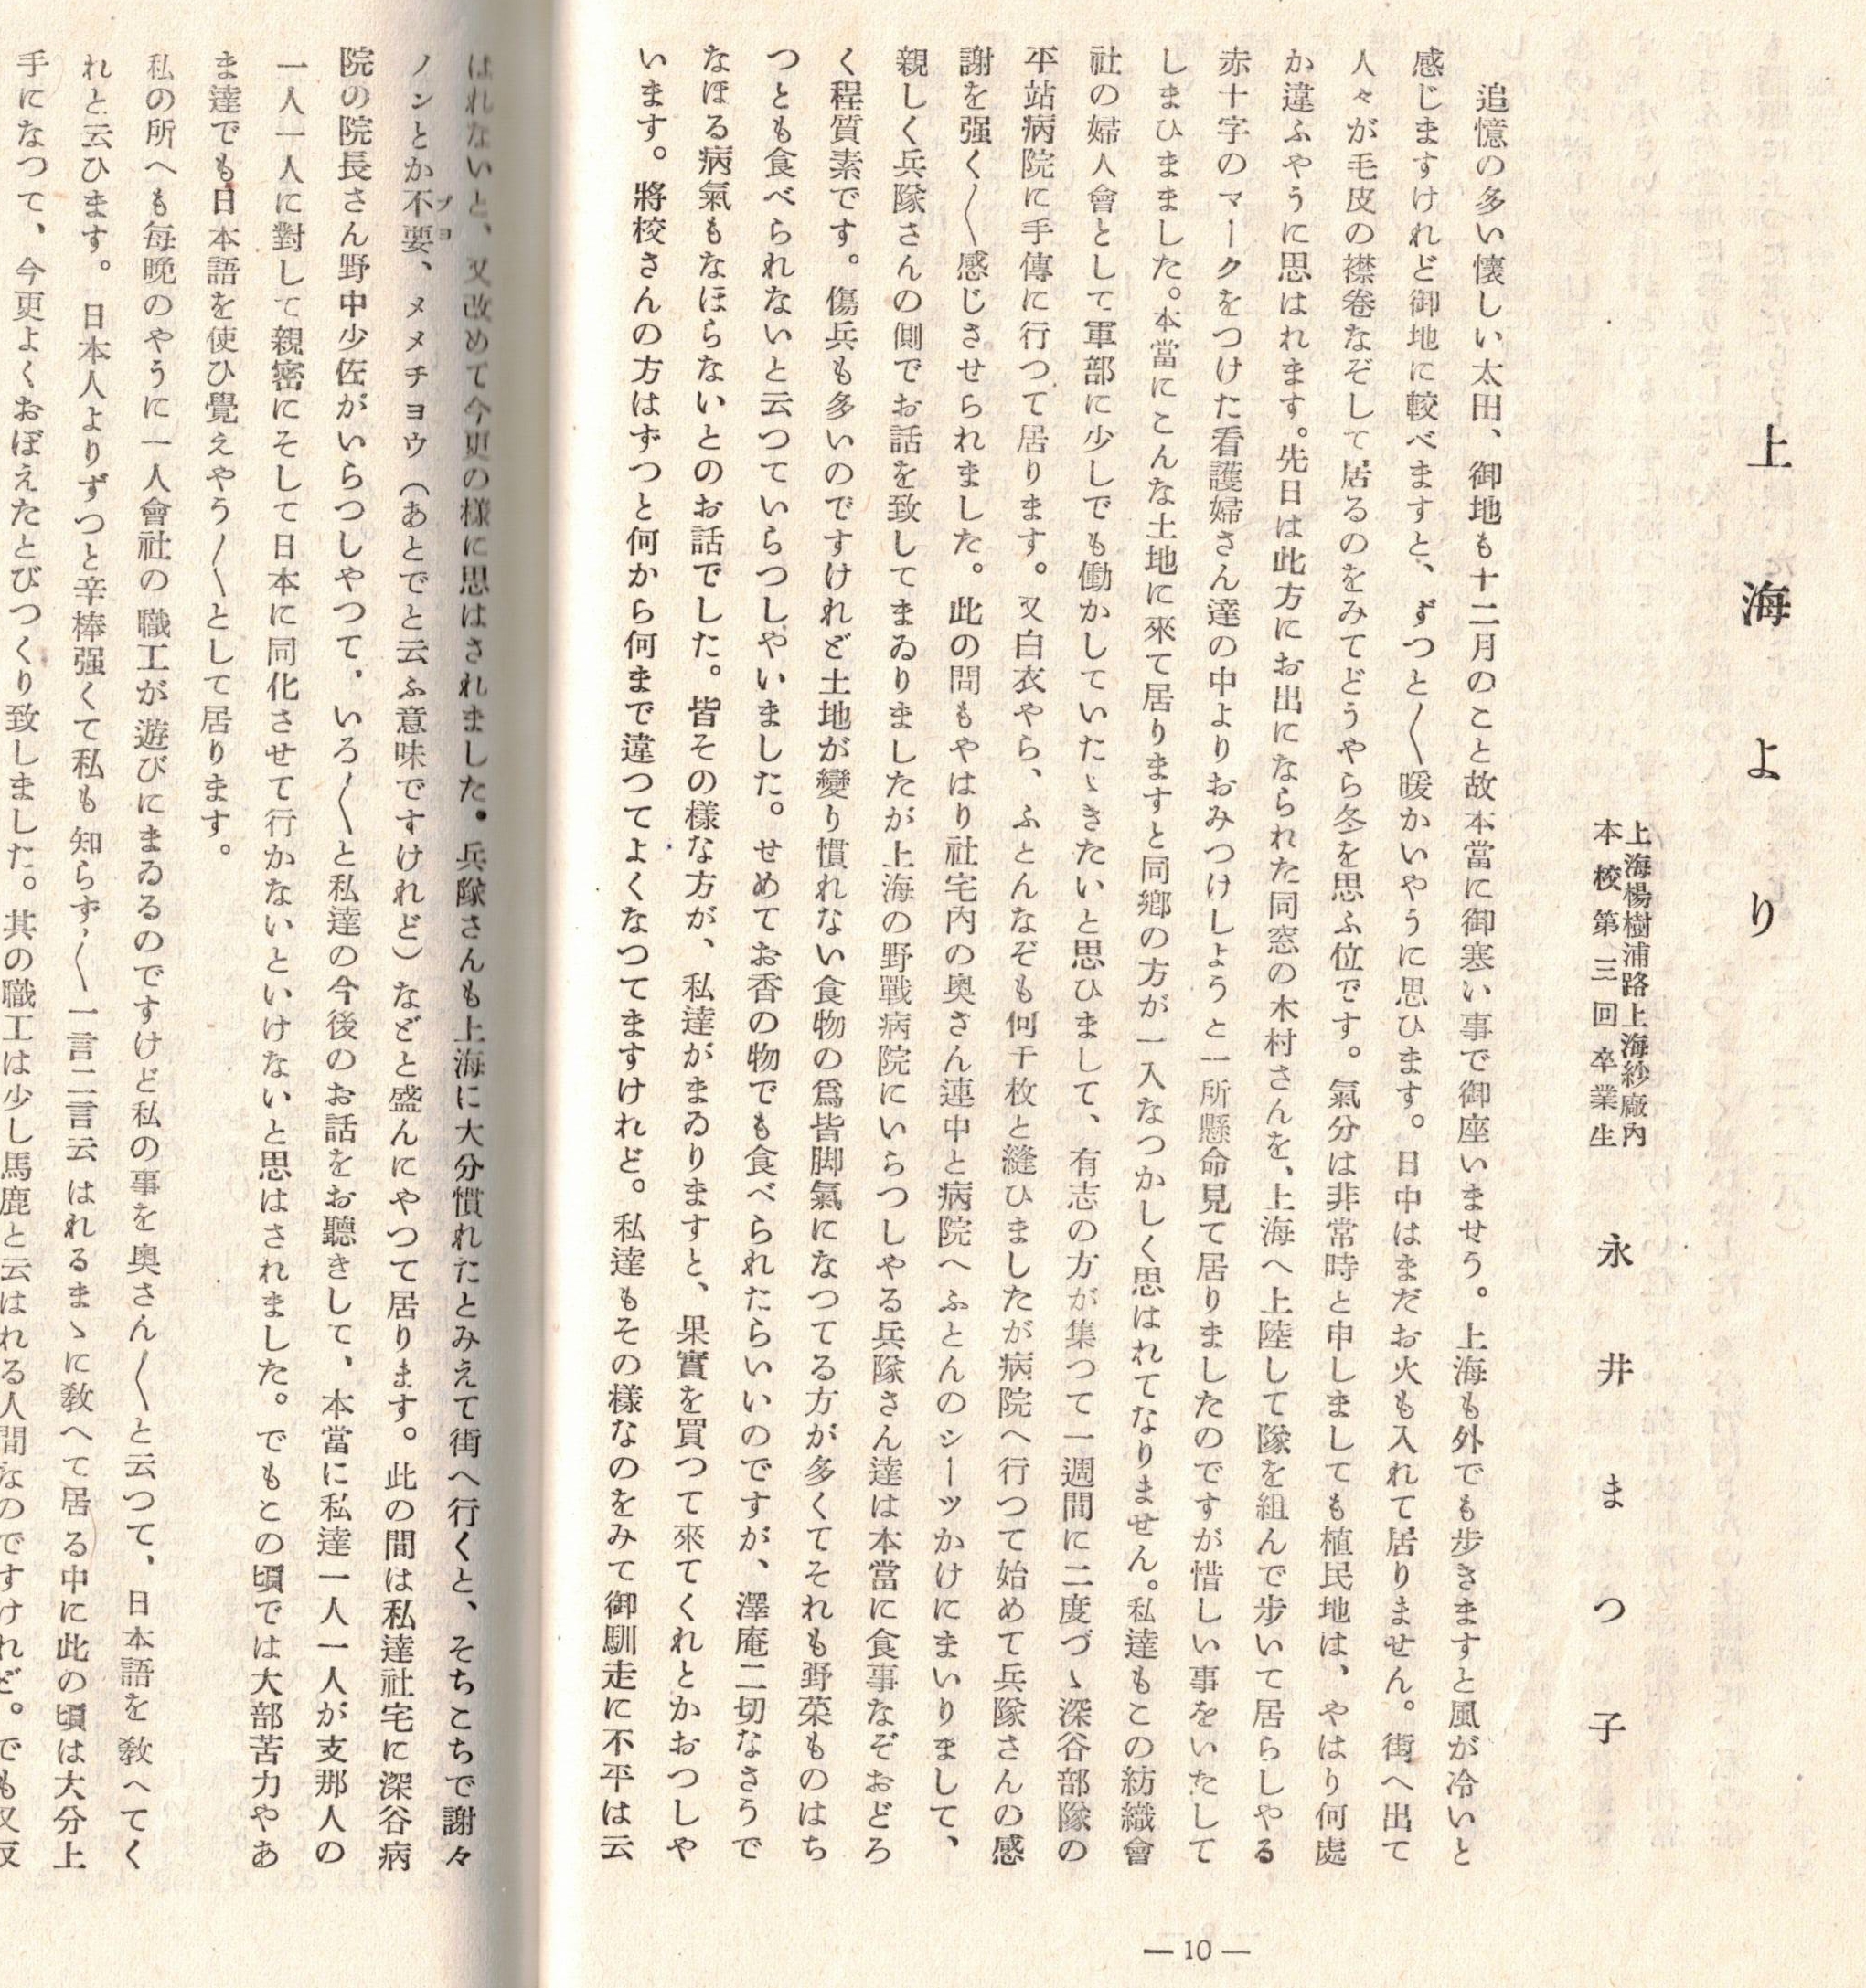 上海より
上海楊樹浦路上海紗廠內
本校第三回卒業生
永井まつ子
追憶の多い懷しい太田、御地も十二月のこと故本當に御寒い事で御座いませう。上海も外でも步きますと風が冷いと
感じますけれど御地に較べますと、ずつと〱暖かいやうに思ひます。日中はまだお火も入れて居りません。街へ出て
人々が毛皮の襟卷なぞして居るのをみてどうやら冬を思ふ位です。氣分は非常時と申しましても植民地は、やはり何處
か違ふやうに思はれます。先日は此方にお出になられた同窓の木村さんを、上海へ上陸して隊を組んで步いて居らしやる
赤十字のマークをつけた看護婦さん達の中よりおみつけしようと一所懸命見て居りましたのですが惜しい事をいたして
しまひままました。本當にこんな土地に來て居りますと同鄕の方が一入なつかしく思はれてなりません。私達もこの紡織會
社の婦人會として軍部に少しでも働かしていたゞきたいと思ひまして、有志の方が集つて一週間に二度づゝ深谷部隊の
平站病院に手傳に行つて居ります。又白衣やら、ふとんなぞも何千枚と縫ひましたが病院へ行つて始めて兵隊さんの感
謝を强く〱感じさせられました。此の間もやはり社宅內の奧さん連中と病院へふとんのシーツかけにまいりまして、
親しく兵隊さんの側でお話を致してまゐりましたが上海の野戰病院にいらつしやる兵隊さん達は本當に食事なぞおどろ
く程質素です。傷兵も多いのですけれど土地が變り慣れない食物の爲皆脚氣になつてる方が多くてそれも野菜ものはち
つとも食べられないと云つていらつしやいました。せめてお香の物でも食べられたらいいのですが、澤庵二切なさうで
なほる病氣もなほらないとのお話でした。皆その樣な方が、私達がまゐりますと、果實を買つて來てくれとかおつしや
います。將校さんの方はずつと何から何まで違つてよくなつてますけれど。私達もその樣なのをみて御馴走に不平は云
はれないと、又改めて今更の樣に思はされました。兵隊さんも上海に大分慣れたとみえて街へ行くと、そちこちで謝々
ノンとか不要、メメチヨウ（あとでと云ふ意味ですけれど）などと盛んにやつて居ります。此の間は私達社宅に深谷病
プヨ
院の院長さん野中少佐がいらつしやつて、いろ〱と私達の今後のお話をお聽きして、本當に私達一人一人が支那人の
一人一人に對して親密にそして日本に同化させて行かないといけないと思はされました。でもこの頃では大部苦力やあ
ま達でも日本語を使ひ覺えやう〱として居ります。
私の所へも每晚のやうに一人會社の職工が遊びにまゐるのですけど私の事を奧さん〱と云つて、日本語を敎へてく
れと云ひます。日本人よりずつと辛棒强くて私も知らず〱一言二言云はれるまゝに敎へて居る中に此の頃は大分上
手になつて、今更よくおぼえたとびつくり致しました。其の職工は少し馬鹿と云はれる人間なのですけれど。でも又反
— 10 —